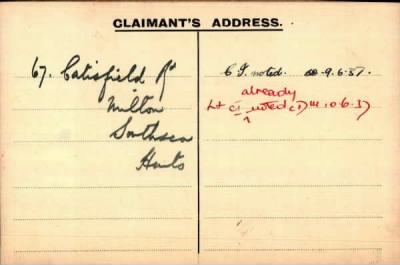 CLAIMANT'S ADDRESS.
67. Catisfield Rd
Milton
Southsea
Hants
C.I. noted. 9.6.37.
already
Lt CI noted 10.6.37